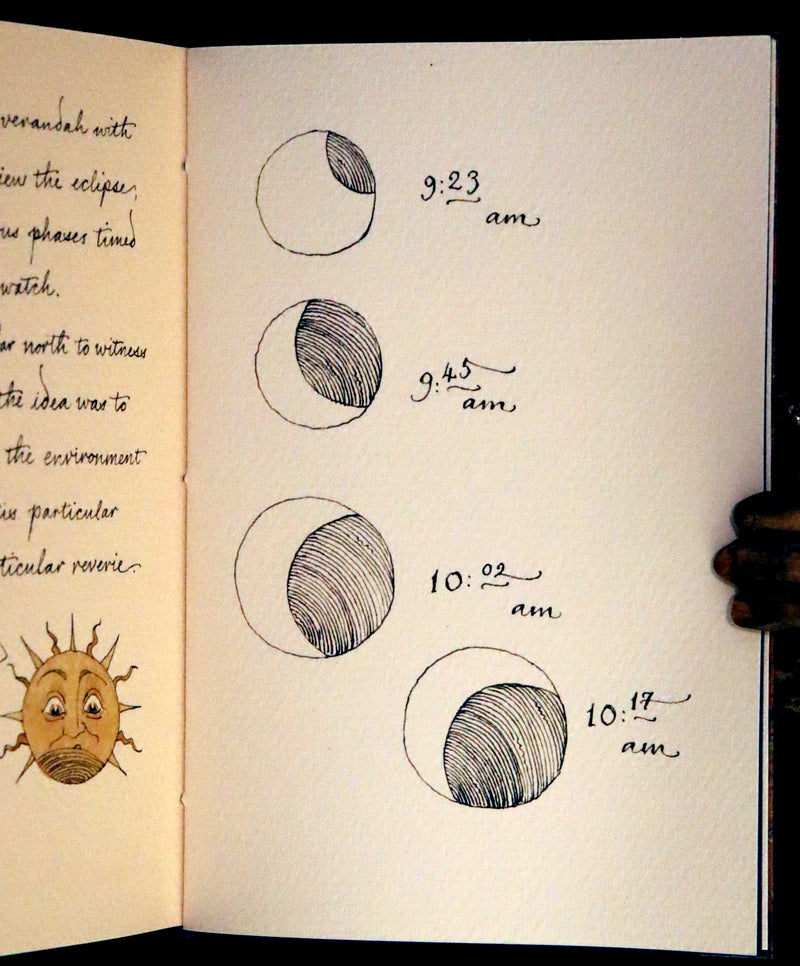 verandah with
view the eclipse;
phases timed
watch.
north to witness
the idea was to
the environment
particular
reverie.
9:23
am
9:45
am
10:02
am
10:17
am